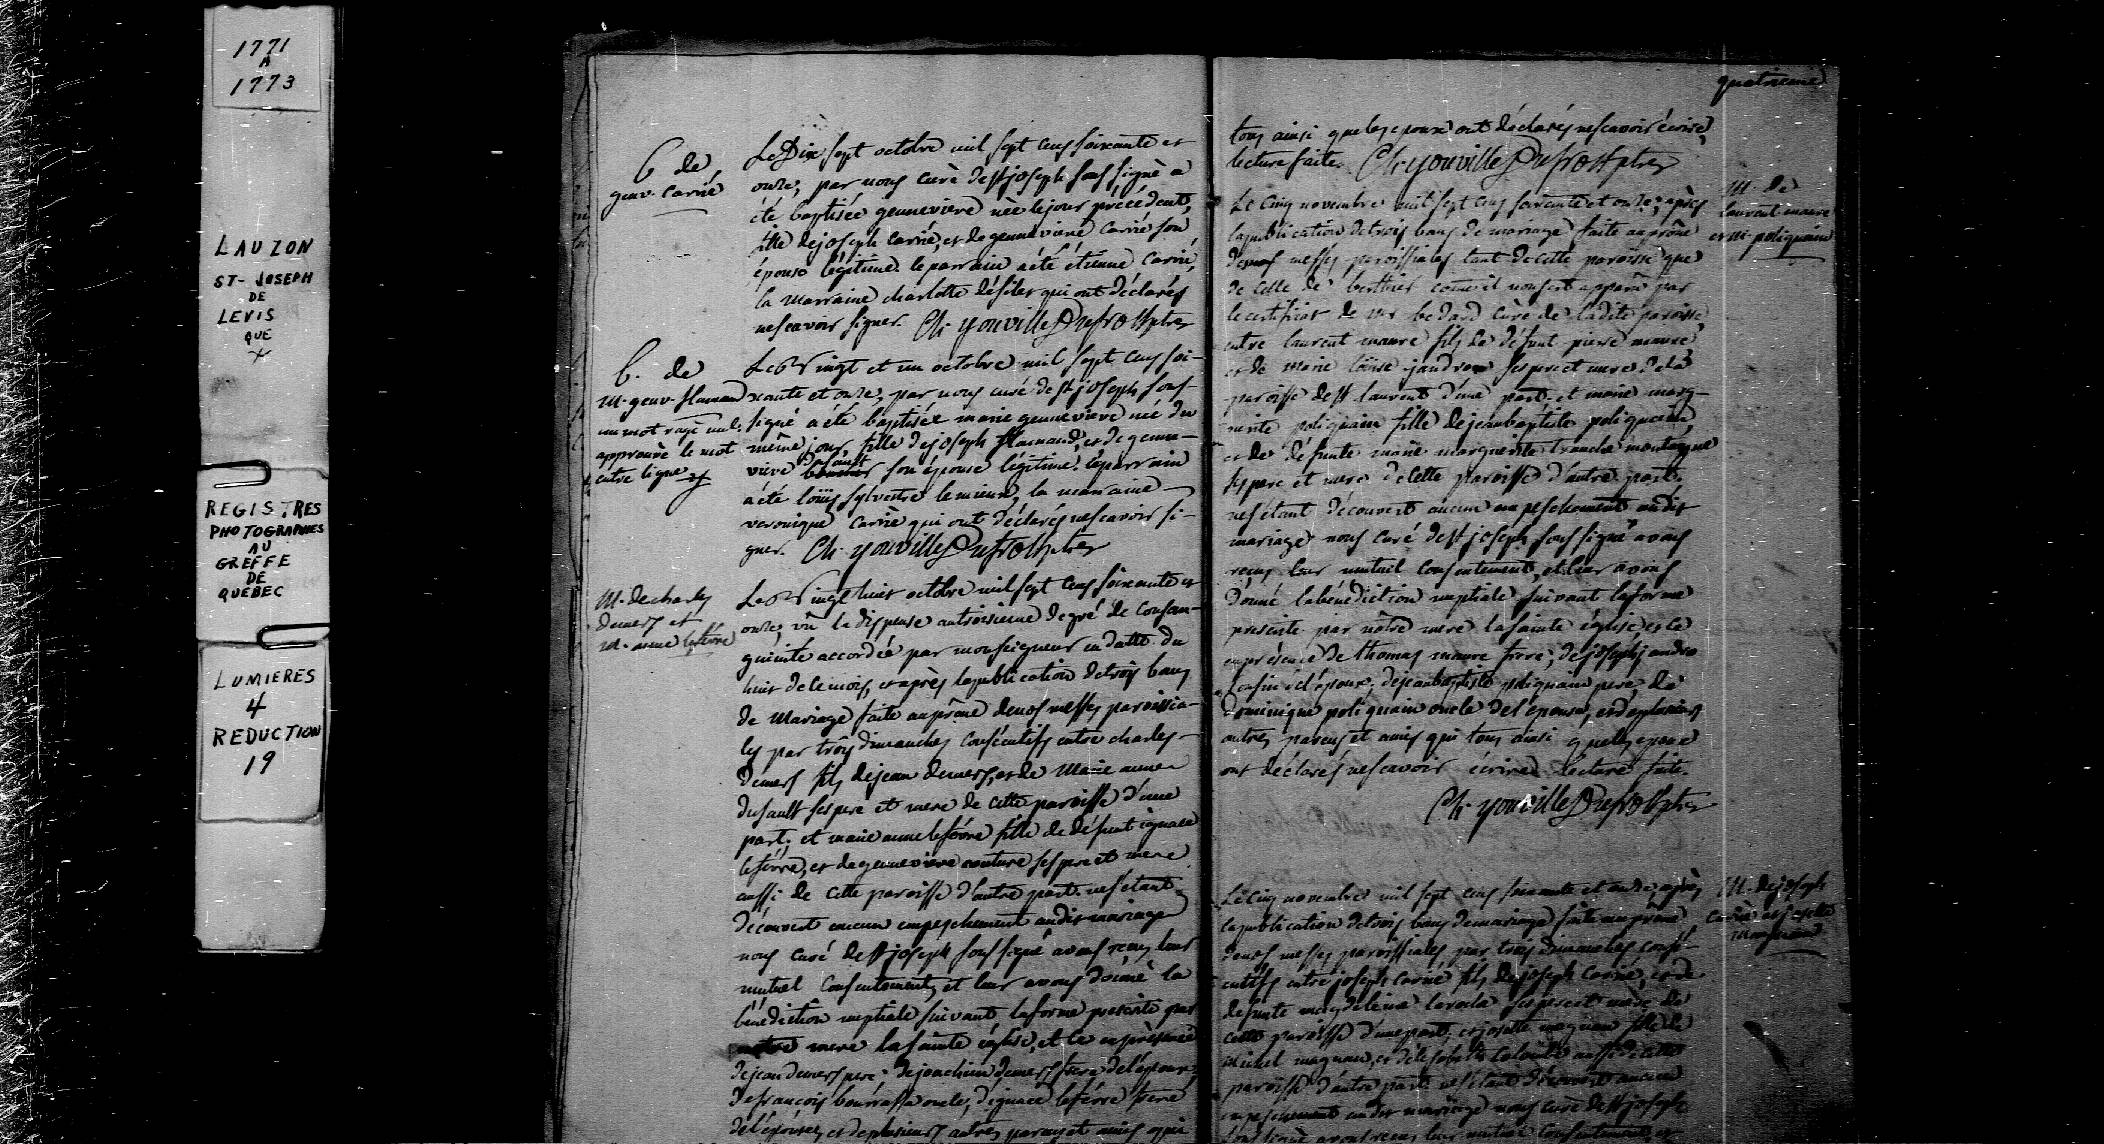 1771
A
1773
LAUZON
ST-JOSEPH
DE
LEVIS
QUE
REGISTRES
PHOTOGRAPHIES
AU
GREFFE
DE
QUEBEC
LUMIERES
4
REDUCTION
19
b de
genv. carrié
Le Dix sept octobre mil sept cens soixante et
onze, par nous curé de st joseph sous signé a
été baptisée genevieve née le jour précédent,
fille de joseph carrié, et de genevieve carrié son
épouse légitime. le parrain a été étienne carrié,
la marraine charlotte désilets qui ont déclarés
ne scavoir signer. Ch. youville Dufrost ptre
b. de
m. genv. flamand
un mot rayé nul.
approuvé le mot
entre ligne
Le Vingt et un octobre mil sept cens soi-
xante et onze, par nous curé de st joseph sous-
signé a été baptisée marie genevieve née du
même jour, fille de joseph flamand, et de genne-
vieve dusault son épouse légitime. le parrain
a été loüis sylvestre lemieux, la marraine
veronique carrié qui ont déclarés ne scavoir si-
gner. Ch. youville Dufrost ptre
M. de charles
demers et
m. anne lefévre
Le Vingt huit octobre mil sept cens soixante et
onze, vû la dispense au troisieme degré de consan-
guinité accordée par monseigneur en datte du
huit de ce mois, et après la publication de trois bans
de Mariage faite au prône de nos messes paroissia-
les par trois dimanches consécutifs entre charles
demers fils de jean demers, et de Marie anne
dusault ses pere et mere de cette paroisse d'une
part; et marie anne lefévre fille de défunt ignace
lefévre, et de genevieve couture ses pere et mere
aussi de cette paroisse d'autre part ne s'étant
découvert aucun empeschement au dit mariage
nous curé de st joseph sous signé avons reçu leur
mutuel consentement, et leur avons donné la
bénediction nuptiale suivant la forme prescrite par
notre mere la sainte église, et ce en présence
de jean demers pere, de joachim demers frere de l'époux,
de francois bourassa oncle, d'ignace lefévre frere
de l'épouse, et de plusieurs autres parens et amis qui
quatrieme
tous ainsi que les epoux ont déclarés ne scavoir écrire,
lecture faite. Ch. youville Dufrost ptre
M. de
laurent maure
et m. poliquain
Le Cinq novembre mil sept cens soixante et onze, après
la publication de trois bans de mariage faite au prône
de nos messes paroissiales tant de cette paroisse que
de celle de berthier comme il nous est apparu par
le certificat de mr bedard curé de la dite paroisse,
entre laurent maure fils de défunt pierre maure
et de marie loüise jandron ses pere et mere de la
paroisse de st laurent d'une part; et marie marg-
uerite poliquain fille de jean baptiste poliquain,
et de défunte marie marguerite tranche montagne
ses pere et mere de cette paroisse d'autre part.
ne s'étant découvert aucun empeschement au dit
mariage nous curé de st joseph sous signé avons
reçu leur mutuel consentement, et leur avons
donné la bénédiction nuptiale suivant la forme
prescrite par nôtre mere la sainte église, et ce
en présence de thomas maure frere, de joseph jandron
cousin de l'époux, de jean baptiste poliquain pere, de
dominique poliquain oncle de l'épouse, et de plusieurs
autres parens et amis qui tous ainsi que les epoux
ont déclarés ne scavoir écrire lecture faite.
Ch. youville Dufrost ptre
M. de joseph
carrié et josette
magnian
Le Cinq novembre mil sept cens soixante et onze, après
la publication de trois bans de mariage faite au prône
de nos messes paroissiales par trois dimanches consé-
cutifs entre joseph carrié fils de joseph carrié, et de
defunte magdeleine ses pere et mere de
cette paroisse d'une part; et josette magnian fille de
michel magnian, et d'elisabeth aussi de cette
paroisse d'autre part ne s'étant découvert aucun
empeschement au dit mariage nous curé de st joseph
sous signé avons reçu leur mutuel consentement, et